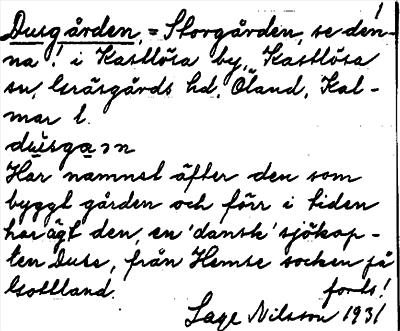 1
Dusgården, = Storgården, se den-
na! i Kastlösa by, Kastlösa
sn, Gräsgårds hd, Öland, Kal-
mar l.
dusgaɔn
Har namnet äfter den som
byggt gården och förr i tiden
har ägt den, en 'dansk' sjökap-
ten Duse, från Hemse socken på
Gottland. forts!
Sage Nilsson 1931